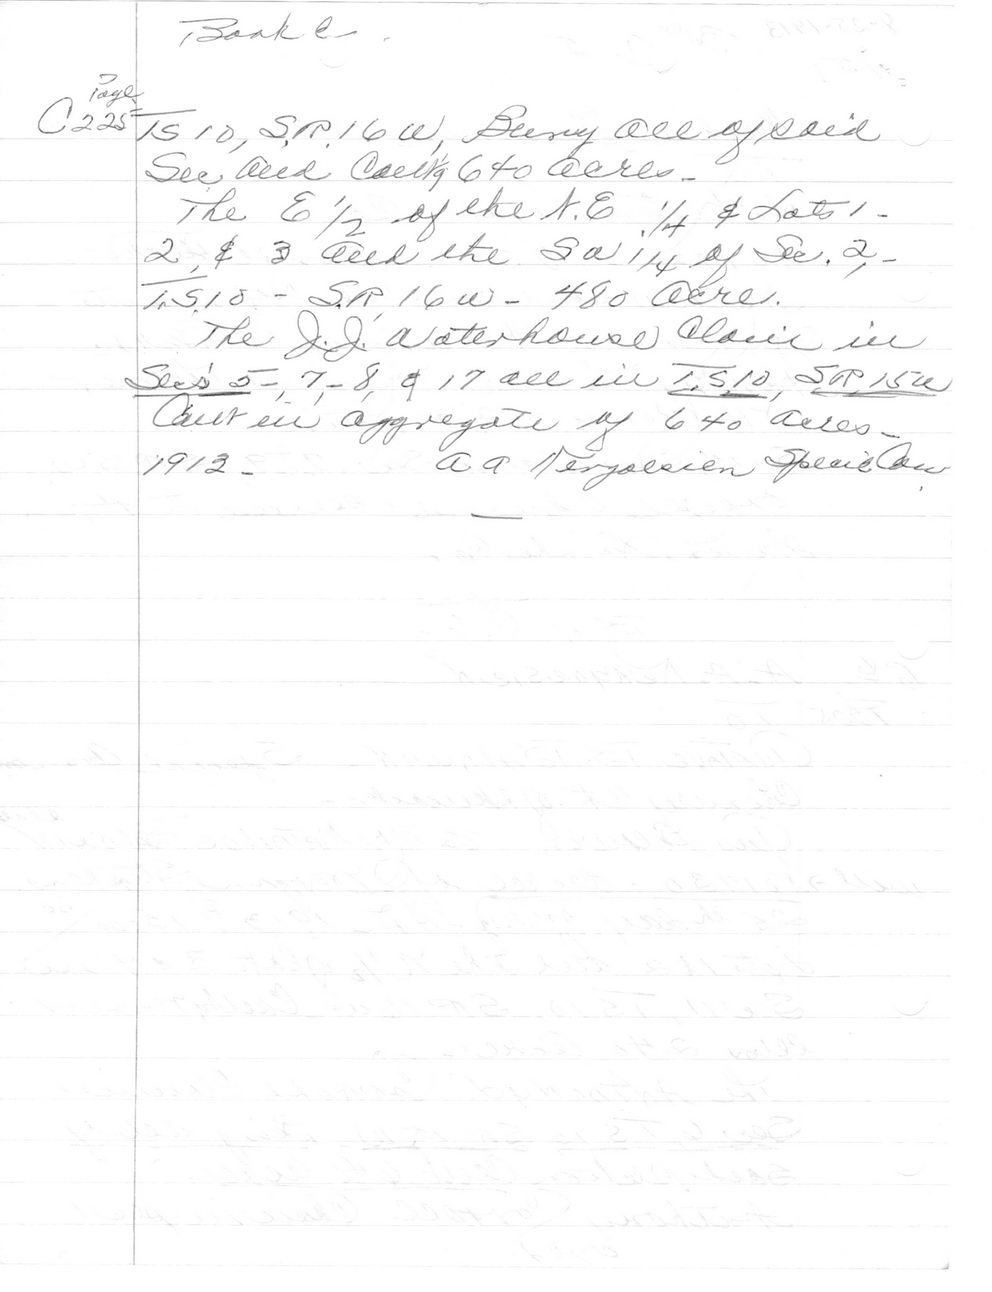 Book C.
Page
C 225
T.S 10, S.R. 16 W, Being all of said
Sec and Cont'g 640 acres -
The E 1/2 of the N.E 1/4 & Lots 1 -
2, & 3 and the S W 1/4 of Sec. 2, -
T.S. 10 - S.R, 16 W - 480 Acre.
The J.J. Waterhouse Claim in
Sec's 5 -, 7 - 8, & 17 all in T.S. 10, S.R. 15 W
Cont in aggregate of 640 Acres -
1912 - A A Special Com